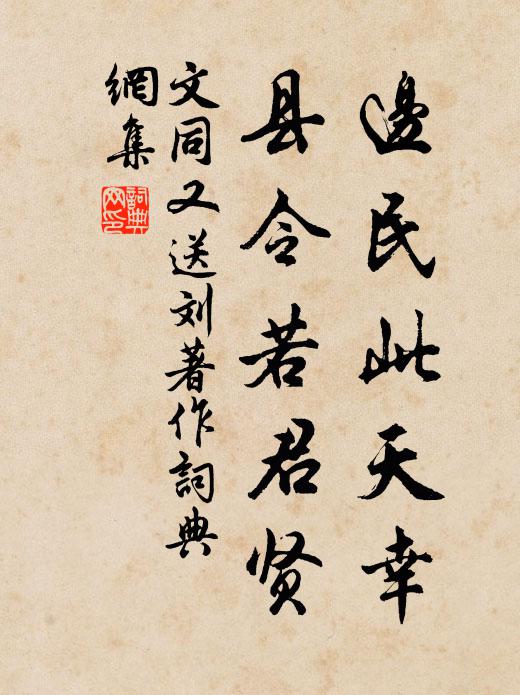 邊民此天幸
县令若君贤
文同又送刘著作詞典
網集
詞典
网印